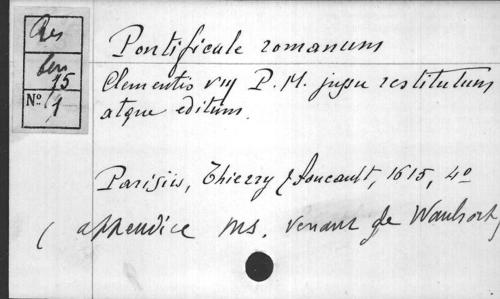 Res
ben
15
No 1
Pontificale romanum
Clementis VIII P. M. jussu restitutum
atque editum.
Parisiis, Thierry & Foucault, 1615, 4o
( appendice ms. venant de Waulsort)